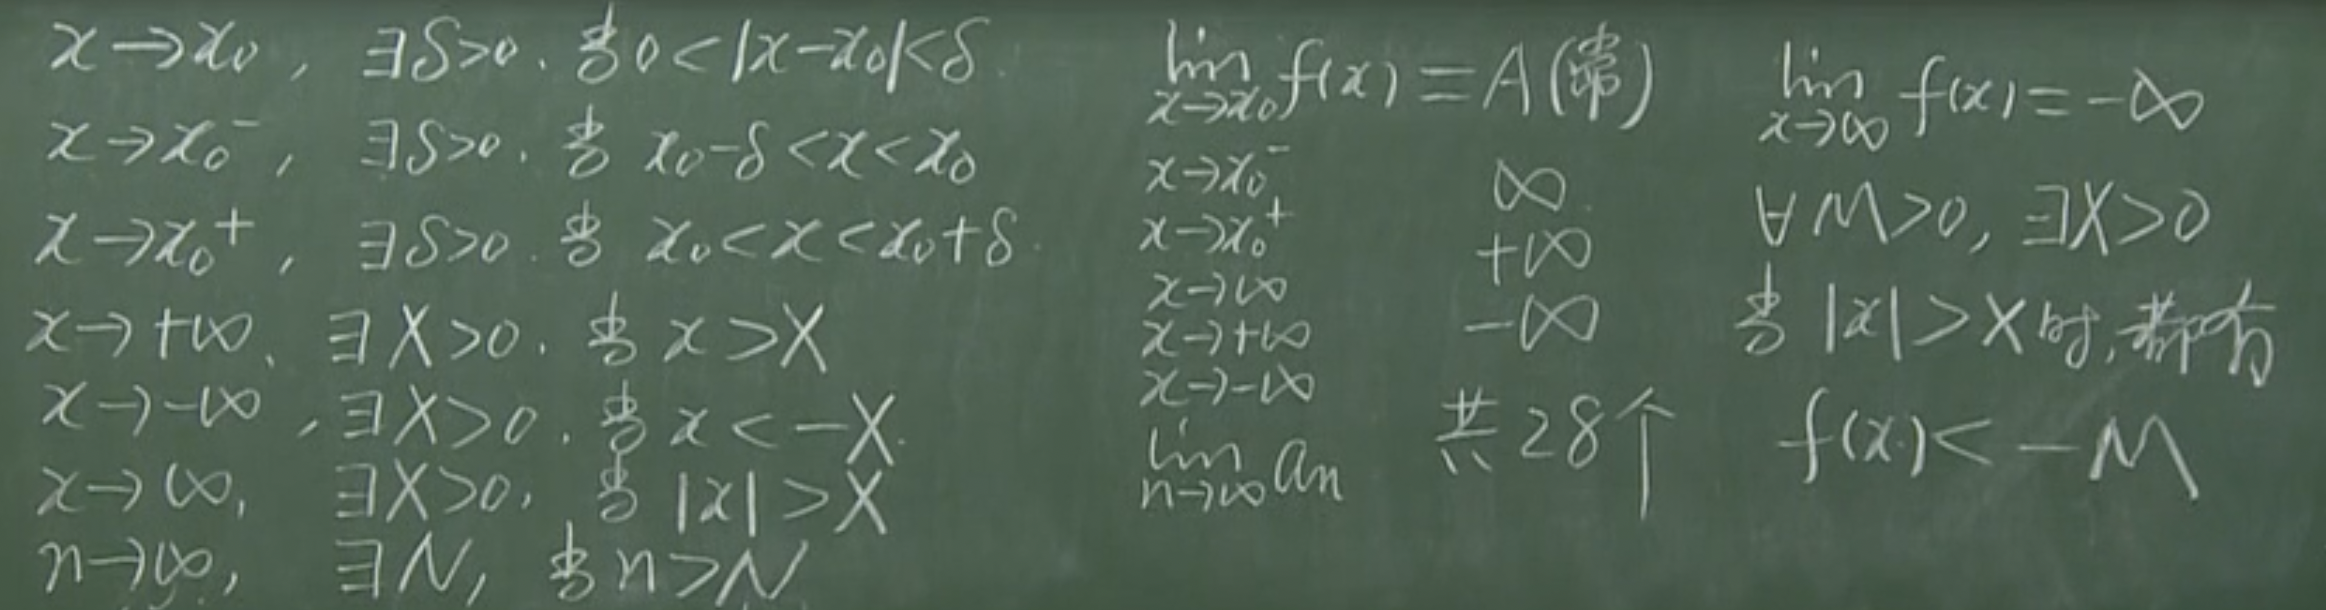 x→x₀, ∃δ>0. 当 0<|x-x₀|<δ.
x→x₀⁻, ∃δ>0. 当 x₀-δ<x<x₀
x→x₀⁺, ∃δ>0. 当 x₀<x<x₀+δ.
x→+∞, ∃X>0. 当 x>X
x→-∞, ∃X>0. 当 x<-X.
x→∞, ∃X>0, 当 |x|>X
n→∞, ∃N, 当 n>N
lim f(x)=A(常)
x→x₀
x→x₀⁻ ∞
x→x₀⁺ +∞
x→∞ -∞
x→+∞
x→-∞
lim aₙ 共28个
n→∞
lim f(x)=-∞
x→∞
∀M>0, ∃X>0
当 |x|>X时,都有
f(x)<-M